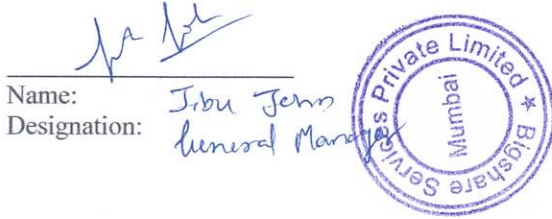 Name: Jibu John
Designation: General Manager
Bigshare Services Private Limited ★
Mumbai